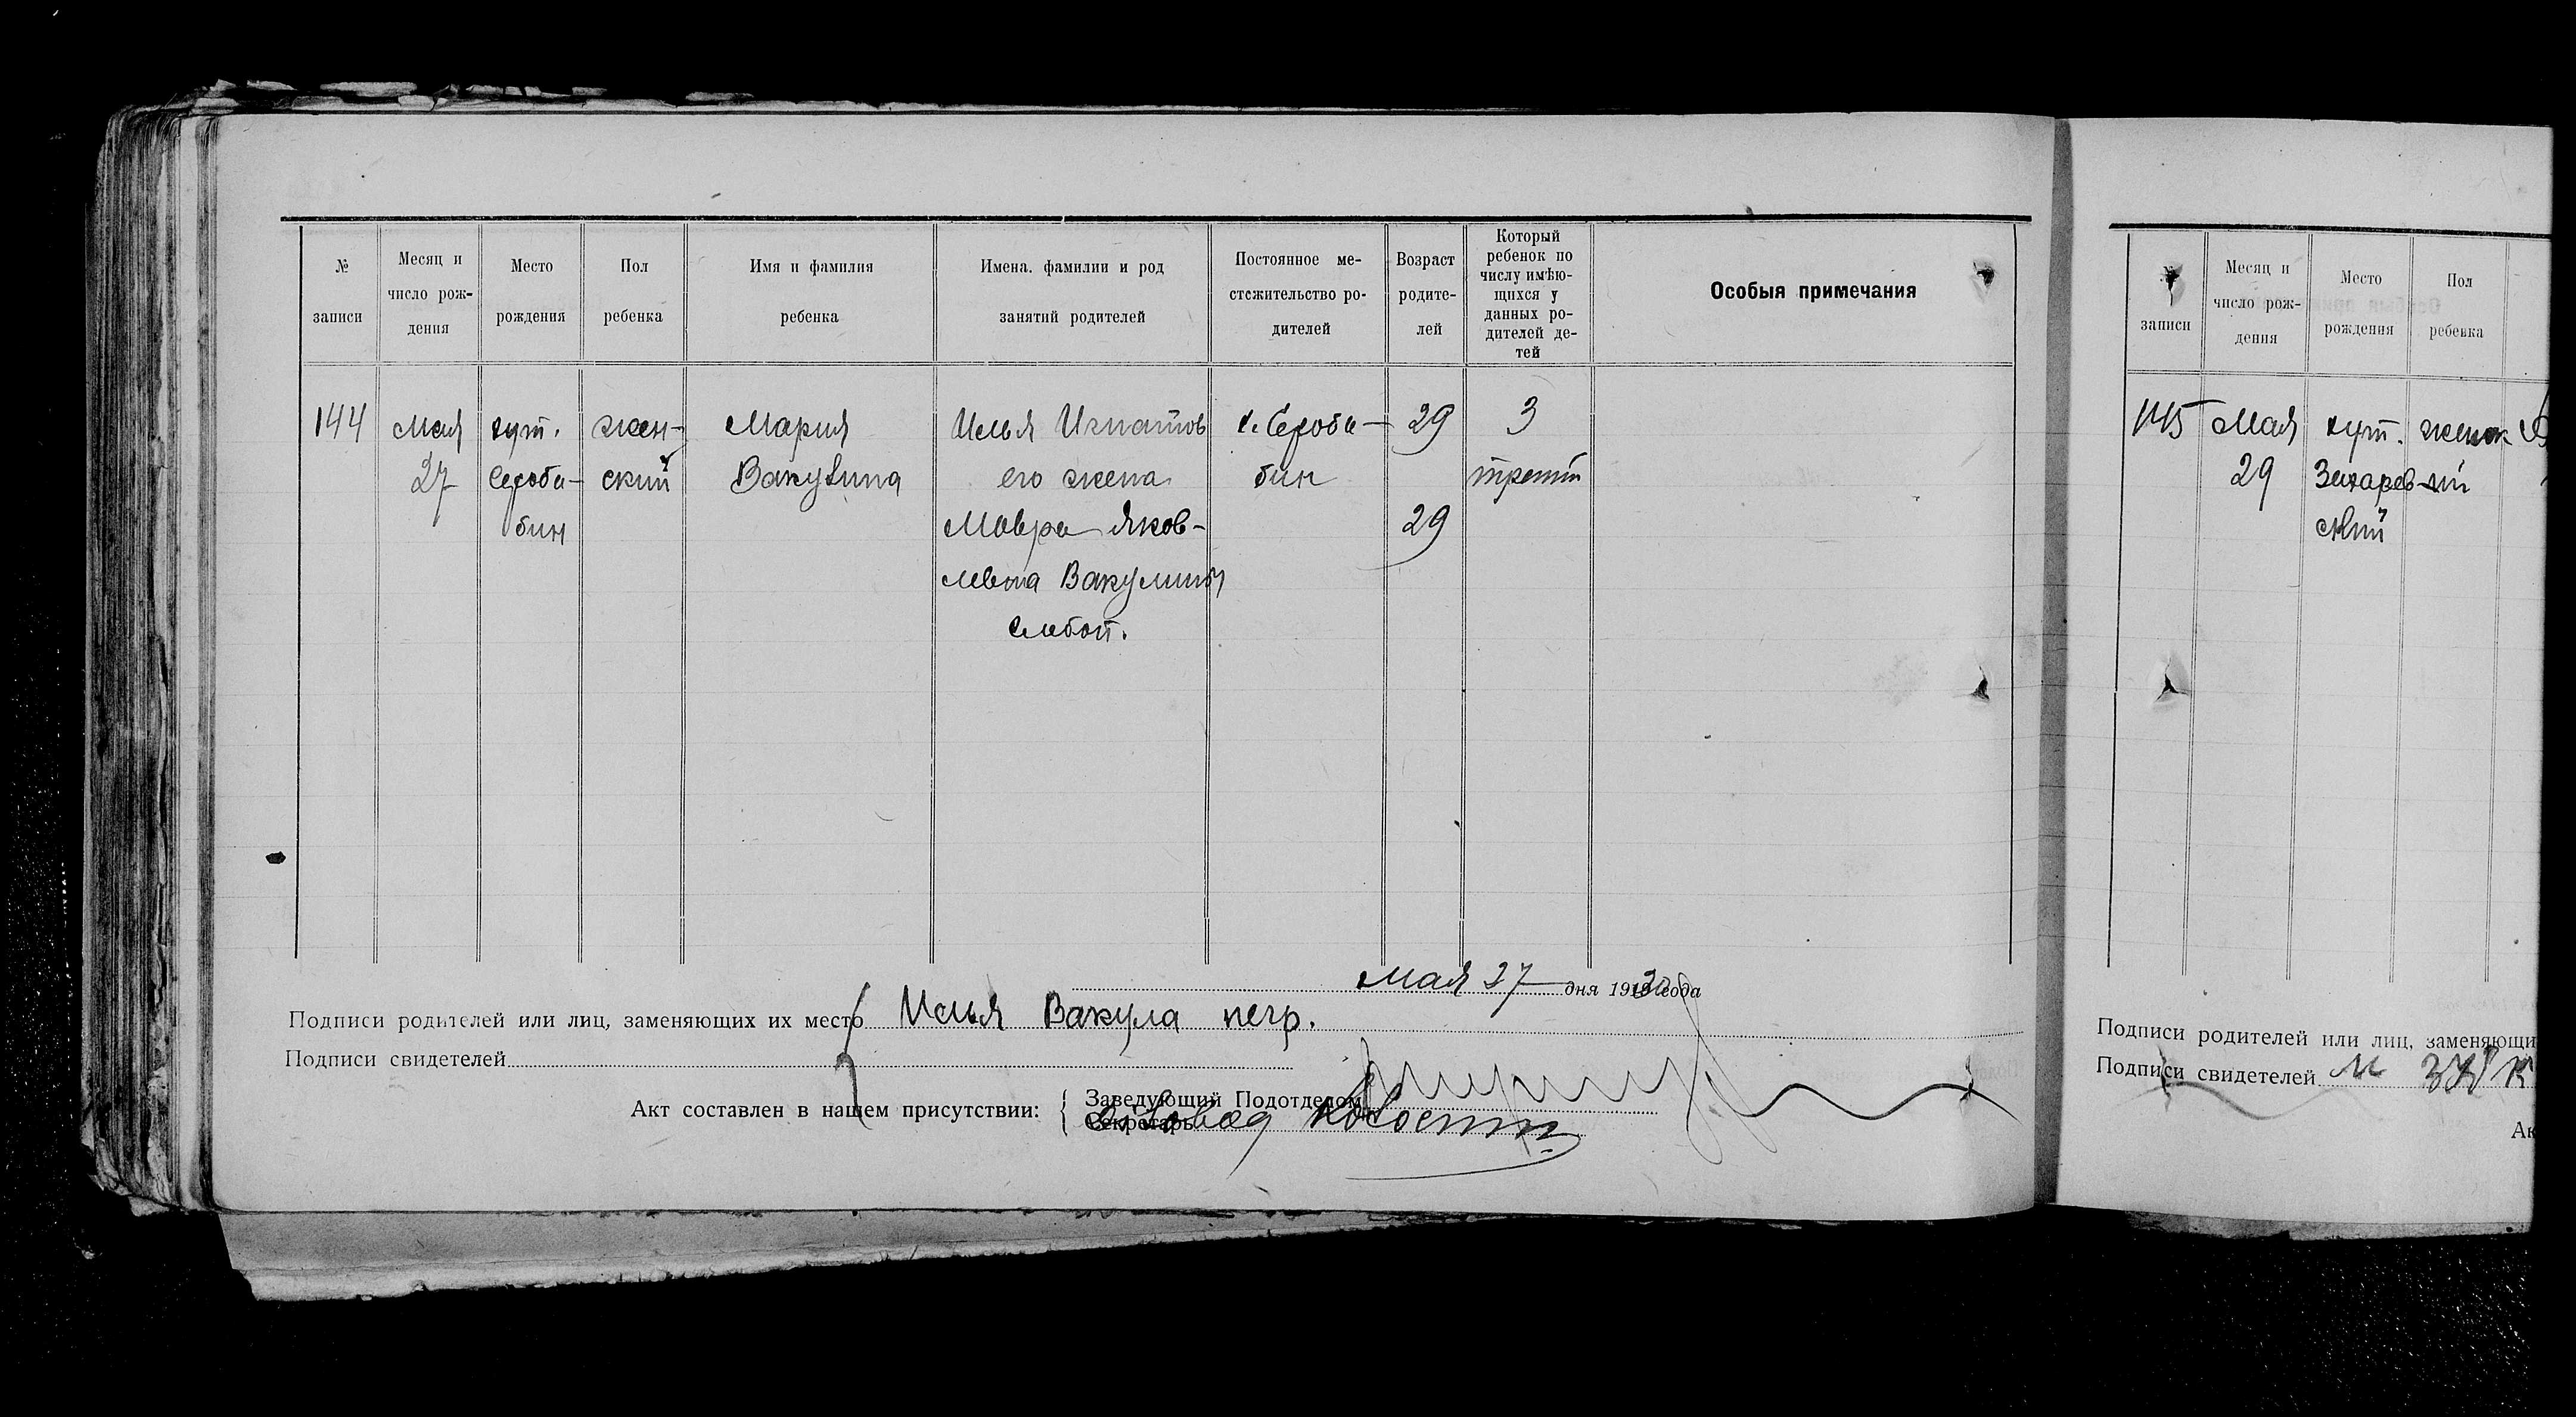 № записи
Месяц и число рождения
Место рождения
Пол ребенка
Имя и фамилия ребенка
Имена. фамилии и род занятий родителей
Постоянное местожительство родителей
Возраст родителей
Который ребенок по числу имѣющихся у данных родителей детей
Особыя примечания
144
мая
27
хут.
бин
жен-
ский
Мария
Илья Игнатов
его жена
Мавра Яков-
левна
бин
29
29
3
третий
мая 27 дня 19 года
Подписи родителей или лиц, заменяющих их место Илья Вакула
Подписи свидетелей
Акт составлен в нашем присутствии:
Заведующий Подотделом
Секретарь
№ записи
Месяц и число рождения
Место рождения
Пол ребенка
145
Мая
29
хут.
Захарев-
ский
Подписи родителей или лиц, заменяющи
Подписи свидетелей
Ак